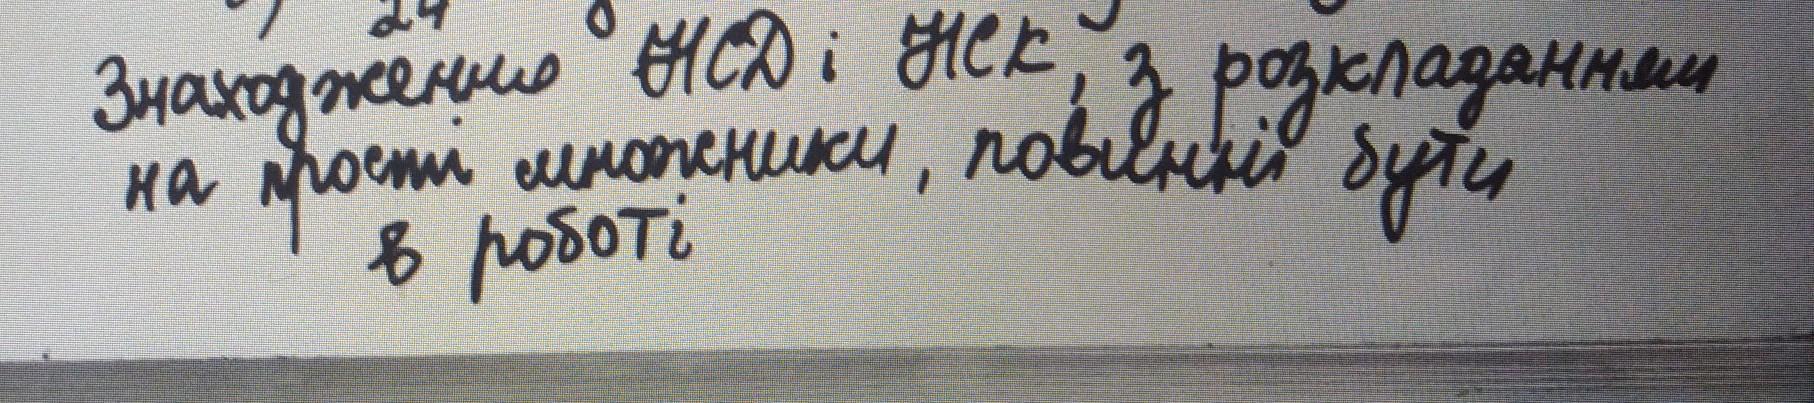 24
Знаходження НСД і НСК, з розкладанням
на прості множники, повинні бути
в роботі